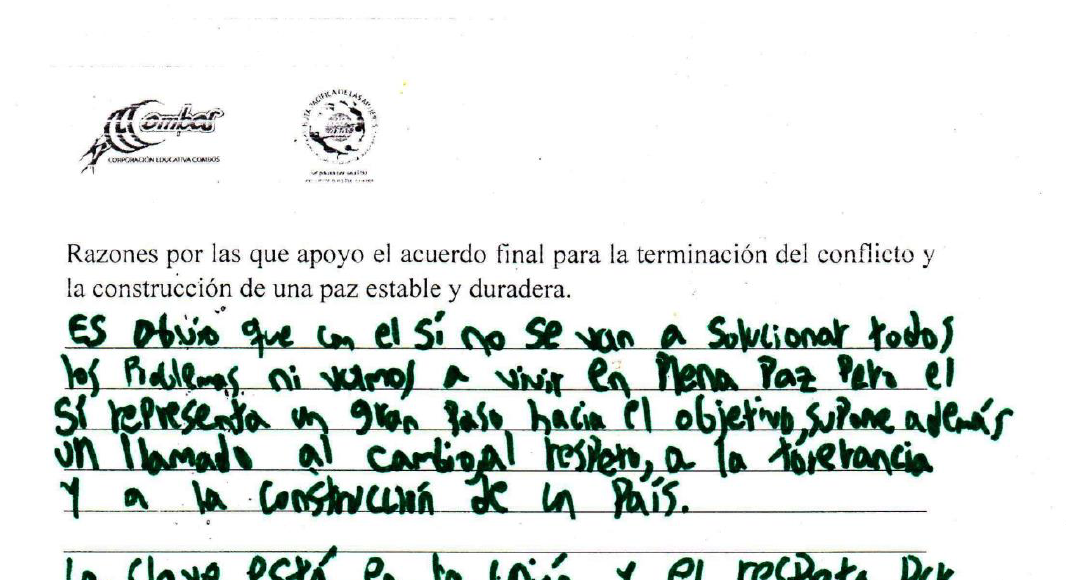 Combos
CORPORACIÓN EDUCATIVA COMBOS
Razones por las que apoyo el acuerdo final para la terminación del conflicto y
la construcción de una paz estable y duradera.
ES obvio que con el Sí no se van a Solucionar todos
los Problemas ni vamos a vivir en Plena Paz Pero el
Sí rePresenta un gran Paso hacia el objetivo, suPone además
un llamado al cambio, al resPeto, a la tolerancia
Y a la construcción de un País.
La clave está en la unión y el resPeto Por